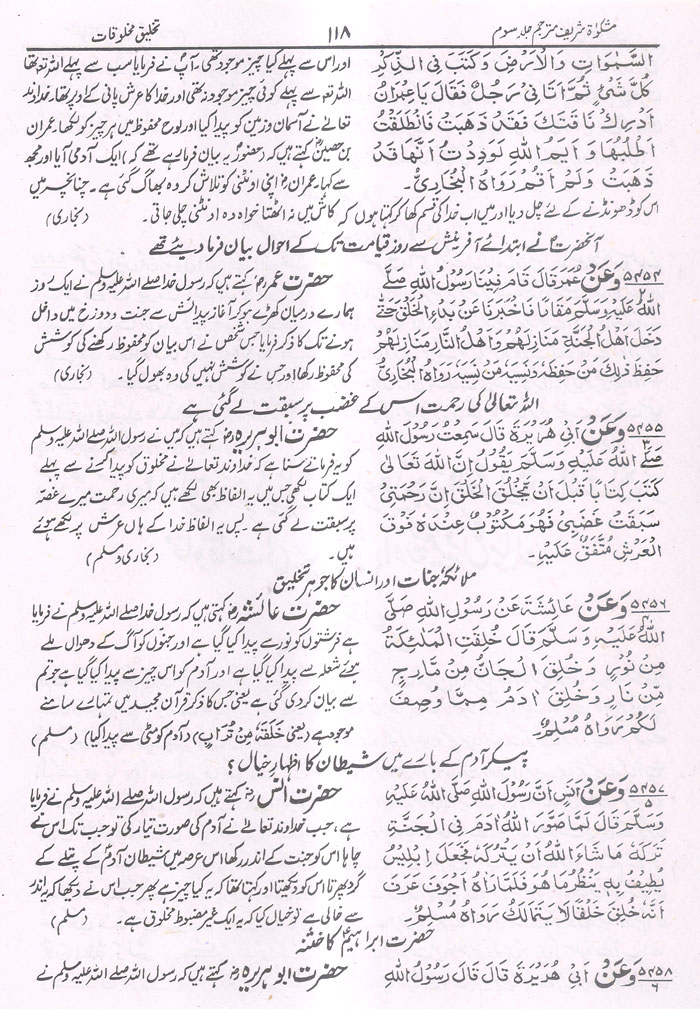 مشکوٰۃ شریف مترجم جلد سوم
۱۱۸
تخلیق مخلوقات
السَّمٰوَاتِ وَالْاَرْضَ وَكَتَبَ فِي الذِّكْرِ
كُلَّ شَيْءٍ ثُمَّ اَتَانِيْ رَجُلٌ فَقَالَ يَا عِمْرَانُ
اَدْرِكْ نَاقَتَكَ فَقَدْ ذَهَبَتْ فَانْطَلَقْتُ
اَطْلُبُهَا وَاَيْمُ اللهِ لَوَدِدْتُ اَنَّهَا قَدْ
ذَهَبَتْ وَلَمْ اَقُمْ رَوَاهُ الْبُخَارِيُّ۔
اور اس سے پہلے کیا چیز موجود تھی، آپ نے فرمایا سب سے پہلے اللہ تھا
اللہ سے پہلے کوئی چیز موجود نہ تھی اور خدا کا عرش پانی کے اوپر تھا، خداوند
تعالےٰ نے آسمان وزمین کو پیدا کیا اور لوح محفوظ میں ہر چیز کو لکھا۔ عمران
بن حصین کہتے ہیں کہ (حضور یہ بیان فرما رہے تھے کہ) ایک آدمی آیا اور مجھ
سے کہا۔ عمران اپنی اونٹنی کو تلاش کر وہ بھاگ گئی ہے۔ چنانچہ میں
اس کو ڈھونڈنے کے لئے چل دیا اور میں اب خدا کی قسم کھا کر کہتا ہوں کہ کاش میں نہ اٹھتا خواہ وہ اونٹنی چلی جاتی۔ (بخاری)
آنحضرت نے ابتدائے آفرینش سے روز قیامت تک کے احوال بیان فرما دیئے تھے
۵۴۵۴ وَعَنْ عُمَرَ قَالَ قَامَ فِيْنَا رَسُوْلُ اللهِ صَلَّے
۲ اللهُ عَلَيْهِ وَسَلَّمَ مَقَامًا فَاَخْبَرَنَا عَنْ بَدْءِ الْخَلْقِ حَتّٰى
دَخَلَ اَهْلُ الْجَنَّةِ مَنَازِلَهُمْ وَاَهْلُ النَّارِ مَنَازِلَهُمْ
حَفِظَ ذٰلِكَ مَنْ حَفِظَهٗ وَنَسِيَهٗ مَنْ نَسِيَهٗ رَوَاهُ الْبُخَارِيُّ
حضرت عمر کہتے ہیں کہ رسول خدا صلے اللہ علیہ وسلم نے ایک روز
ہمارے درمیان کھڑے ہو کر آغاز پیدائش سے جنت و دوزخ میں داخل
ہونے تک کا ذکر فرمایا جس شخص نے اس بیان کو محفوظ رکھنے کی کوشش
کی محفوظ رکھا اور جس نے کوشش نہیں کی وہ بھول گیا۔ (بخاری)
اللہ تعالیٰ کی رحمت اس کے غضب پر سبقت لے گئی ہے
۵۴۵۵ وَعَنْ اَبِيْ هُرَيْرَةَ قَالَ سَمِعْتُ رَسُوْلَ اللهِ
۳ صَلَّے اللهُ عَلَيْهِ وَسَلَّمَ يَقُوْلُ اِنَّ اللهَ تَعَالٰى
كَتَبَ كِتَابًا قَبْلَ اَنْ يَّخْلُقَ الْخَلْقَ اِنَّ رَحْمَتِيْ
سَبَقَتْ غَضَبِيْ فَهُوَ مَكْتُوْبٌ عِنْدَهٗ فَوْقَ
الْعَرْشِ مُتَّفَقٌ عَلَيْهِ۔
حضرت ابو ہریرہ کہتے ہیں کہ میں نے رسول اللہ صلے اللہ علیہ وسلم
کو یہ فرماتے سنا ہے کہ خداوند تعالےٰ نے مخلوق کو پیدا کرنے سے پہلے
ایک کتاب لکھی جس میں یہ الفاظ بھی لکھے ہیں کہ میری رحمت میرے غصہ
پر سبقت لے گئی ہے۔ پس یہ الفاظ خدا کے ہاں عرش پر لکھے ہوئے
ہیں۔ (بخاری و مسلم)
ملائکہ جنات اور انسان کا جوہر تخلیق
۵۴۵۶ وَعَنْ عَائِشَةَ عَنْ رَسُوْلِ اللهِ صَلَّى
اللهُ عَلَيْهِ وَسَلَّمَ قَالَ خُلِقَتِ الْمَلٰئِكَةُ
مِنْ نُوْرٍ وَّخُلِقَ الْجَانُّ مِنْ مَّارِجٍ
مِّنْ نَارٍ وَخُلِقَ اٰدَمُ مِمَّا وُصِفَ
لَكُمْ رَوَاهُ مُسْلِمٌ
حضرت عائشہ کہتی ہیں کہ رسول خدا صلے اللہ علیہ وسلم نے فرمایا
ہے فرشتوں کو نور سے پیدا کیا گیا ہے اور جنوں کو آگ کے دھواں ملے
ہوئے شعلہ سے پیدا کیا گیا ہے اور آدم کو اس چیز سے پیدا کیا گیا ہے جو تم
سے بیان کر دی گئی ہے یعنی جس کا ذکر قرآن مجید میں تمہارے سامنے
موجود ہے (یعنی خَلَقَهٗ مِنْ تُرَابٍ) (آدم کو مٹی سے پیدا کیا) (مسلم)
پیکر آدم کے بارے میں شیطان کا اظہار خیال؟
۵۴۵۷ وَعَنْ اَنَسٍ اَنَّ رَسُوْلَ اللهِ صَلَّى اللهُ عَلَيْهِ
۵ وَسَلَّمَ قَالَ لَمَّا صَوَّرَ اللهُ اٰدَمَ فِي الْجَنَّةِ
تَرَكَهٗ مَا شَاءَ اللهُ اَنْ يَّتْرُكَهٗ فَجَعَلَ اِبْلِيْسُ
يُطِيْفُ بِهٖ يَنْظُرُ مَا هُوَ فَلَمَّا رَاٰهُ اَجْوَفَ عَرَفَ
اَنَّهٗ خُلِقَ خَلْقًا لَا يَتَمَالَكُ رَوَاهُ مُسْلِمٌ
حضرت انس کہتے ہیں کہ رسول اللہ صلے اللہ علیہ وسلم نے فرمایا
ہے، جب خداوند تعالےٰ نے آدم کی صورت تیار کی تو جب تک اس نے
چاہا اس کو جنت کے اندر رکھا اس عرصہ میں شیطان آدم کے پتلے کے
گرد پھرتا اس کو دیکھتا اور کہتا تھا کہ یہ کیا چیز ہے پھر جب اس نے دیکھا کہ یہ اندر
سے خالی ہے تو خیال کیا کہ یہ ایک غیر مضبوط مخلوق ہے۔ (مسلم)
حضرت ابراہیم کا ختنہ
۵۴۵۸ وَعَنْ اَبِيْ هُرَيْرَةَ قَالَ قَالَ رَسُوْلُ اللهِ
۶
حضرت ابو ہریرہ کہتے ہیں کہ رسول اللہ صلے اللہ علیہ وسلم نے